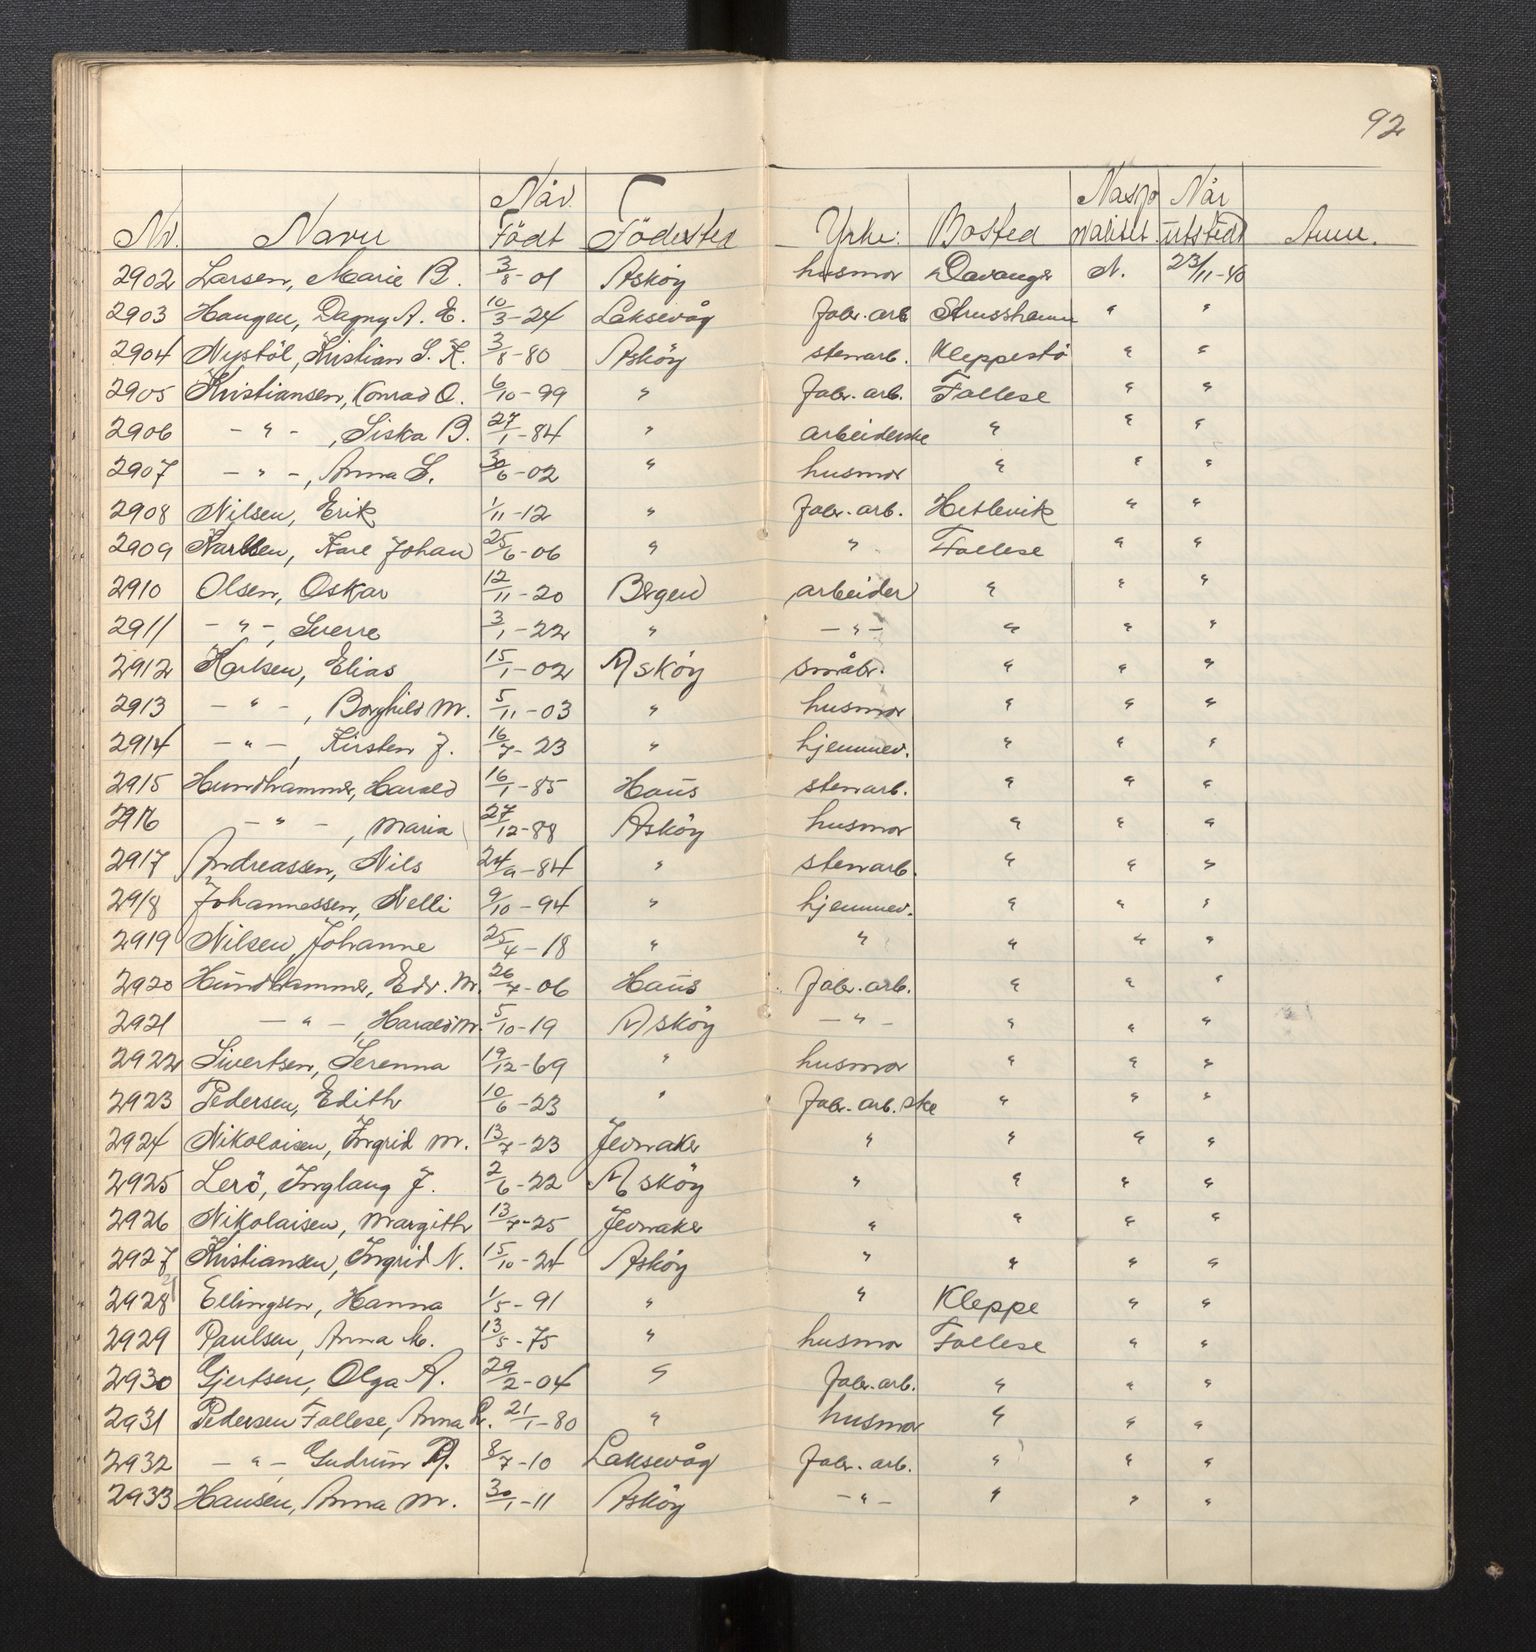 92
Nr. Navn Når Født Födested Yrke: Bosted Nasjonalitet Når utstedt Anm.
2902 Larsen, Marie B. 3/8-01 Asköy husmor Davanger N. 23/11-40
2903 Haugen, Dagny A. E. 10/3-24 Laksevåg fabr. arb Strusshamn " "
2904 Nystöl, Kristian S. K. 3/8-80 Asköy stenarb. Kleppestö " "
2905 Kristiansen, Konrad O. 6/10-99 " fabr. arb. Follese " "
2906 - " - , Siska B. 27/1-84 " arbeiderske " " "
2907 - " - , Anna S. 30/6-02 " husmor " " "
2908 Nilsen, Erik 1/11-12 " fabr. arb. Hetlevik " "
2909 Karlsen, Karl Johan 25/6-06 " " Follese " "
2910 Olsen, Oskar 12/11-20 Bergen arbeider " " "
2911 - " - , Sverre 3/1-22 " - " - " " "
2912 Karlsen, Elias 15/1-02 Asköy småbr. " " "
2913 - " - , Borghild M. 5/11-03 " husmor " " "
2914 - " - , Kirsten J. 16/7-23 " hjemmev. " " "
2915 Hundhammer, Harald 16/1-85 Haus stenarb. " " "
2916 - " - , Maria 27/12-88 Asköy husmor " " "
2917 Andreassen, Nils 24/9-84 " stenarb. " " "
2918 Johannessen, Nelli 9/10-94 " hjemmev. " " "
2919 Nilsen, Johanne 25/4-18 " " " " "
2920 Hundhammer, Edv. M. 26/7-06 Haus fabr. arb. " " "
2921 - " - , Harald M. 5/10-19 Asköy - " - " " "
2922 Sivertsen, Serenna 19/12-69 " husmor " " "
2923 Pedersen, Edith 10/6-23 " fabr. arb. ske " " "
2924 Nikolaisen, Ingrid M. 13/7-23 Jevnaker " " " "
2925 Lerö, Inglaug J. 2/6-22 Asköy " " " "
2926 Nikolaisen, Margith 13/7-25 Jevnaker " " " "
2927 Kristiansen, Ingrid N. 15/10-24 Asköy " " " "
2928 Ellingsen, Hanna 1/5-91 " " Kleppe " "
2929 Paulsen, Anna M. 13/5-75 " husmor Follese " "
2930 Gjertsen, Olga A. 29/2-04 " fabr. arb. " " "
2931 Pedersen Follese, Anna R. 21/1-80 " husmor " " "
2932 - " - Gudrun A. 8/7-10 Laksevåg fabr. arb. " " "
2933 Hansen, Anna M. 30/1-11 Asköy - " - " " "